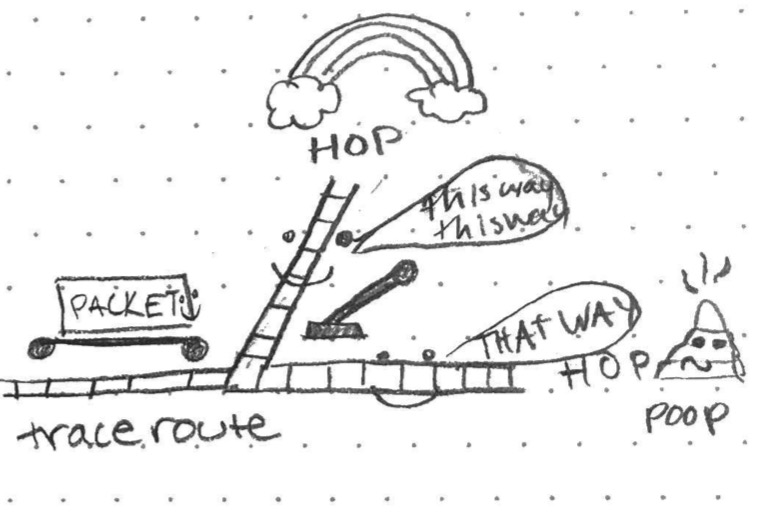 HOP
this way
this way
PACKET
THAT WAY
HOP
POOP
trace route